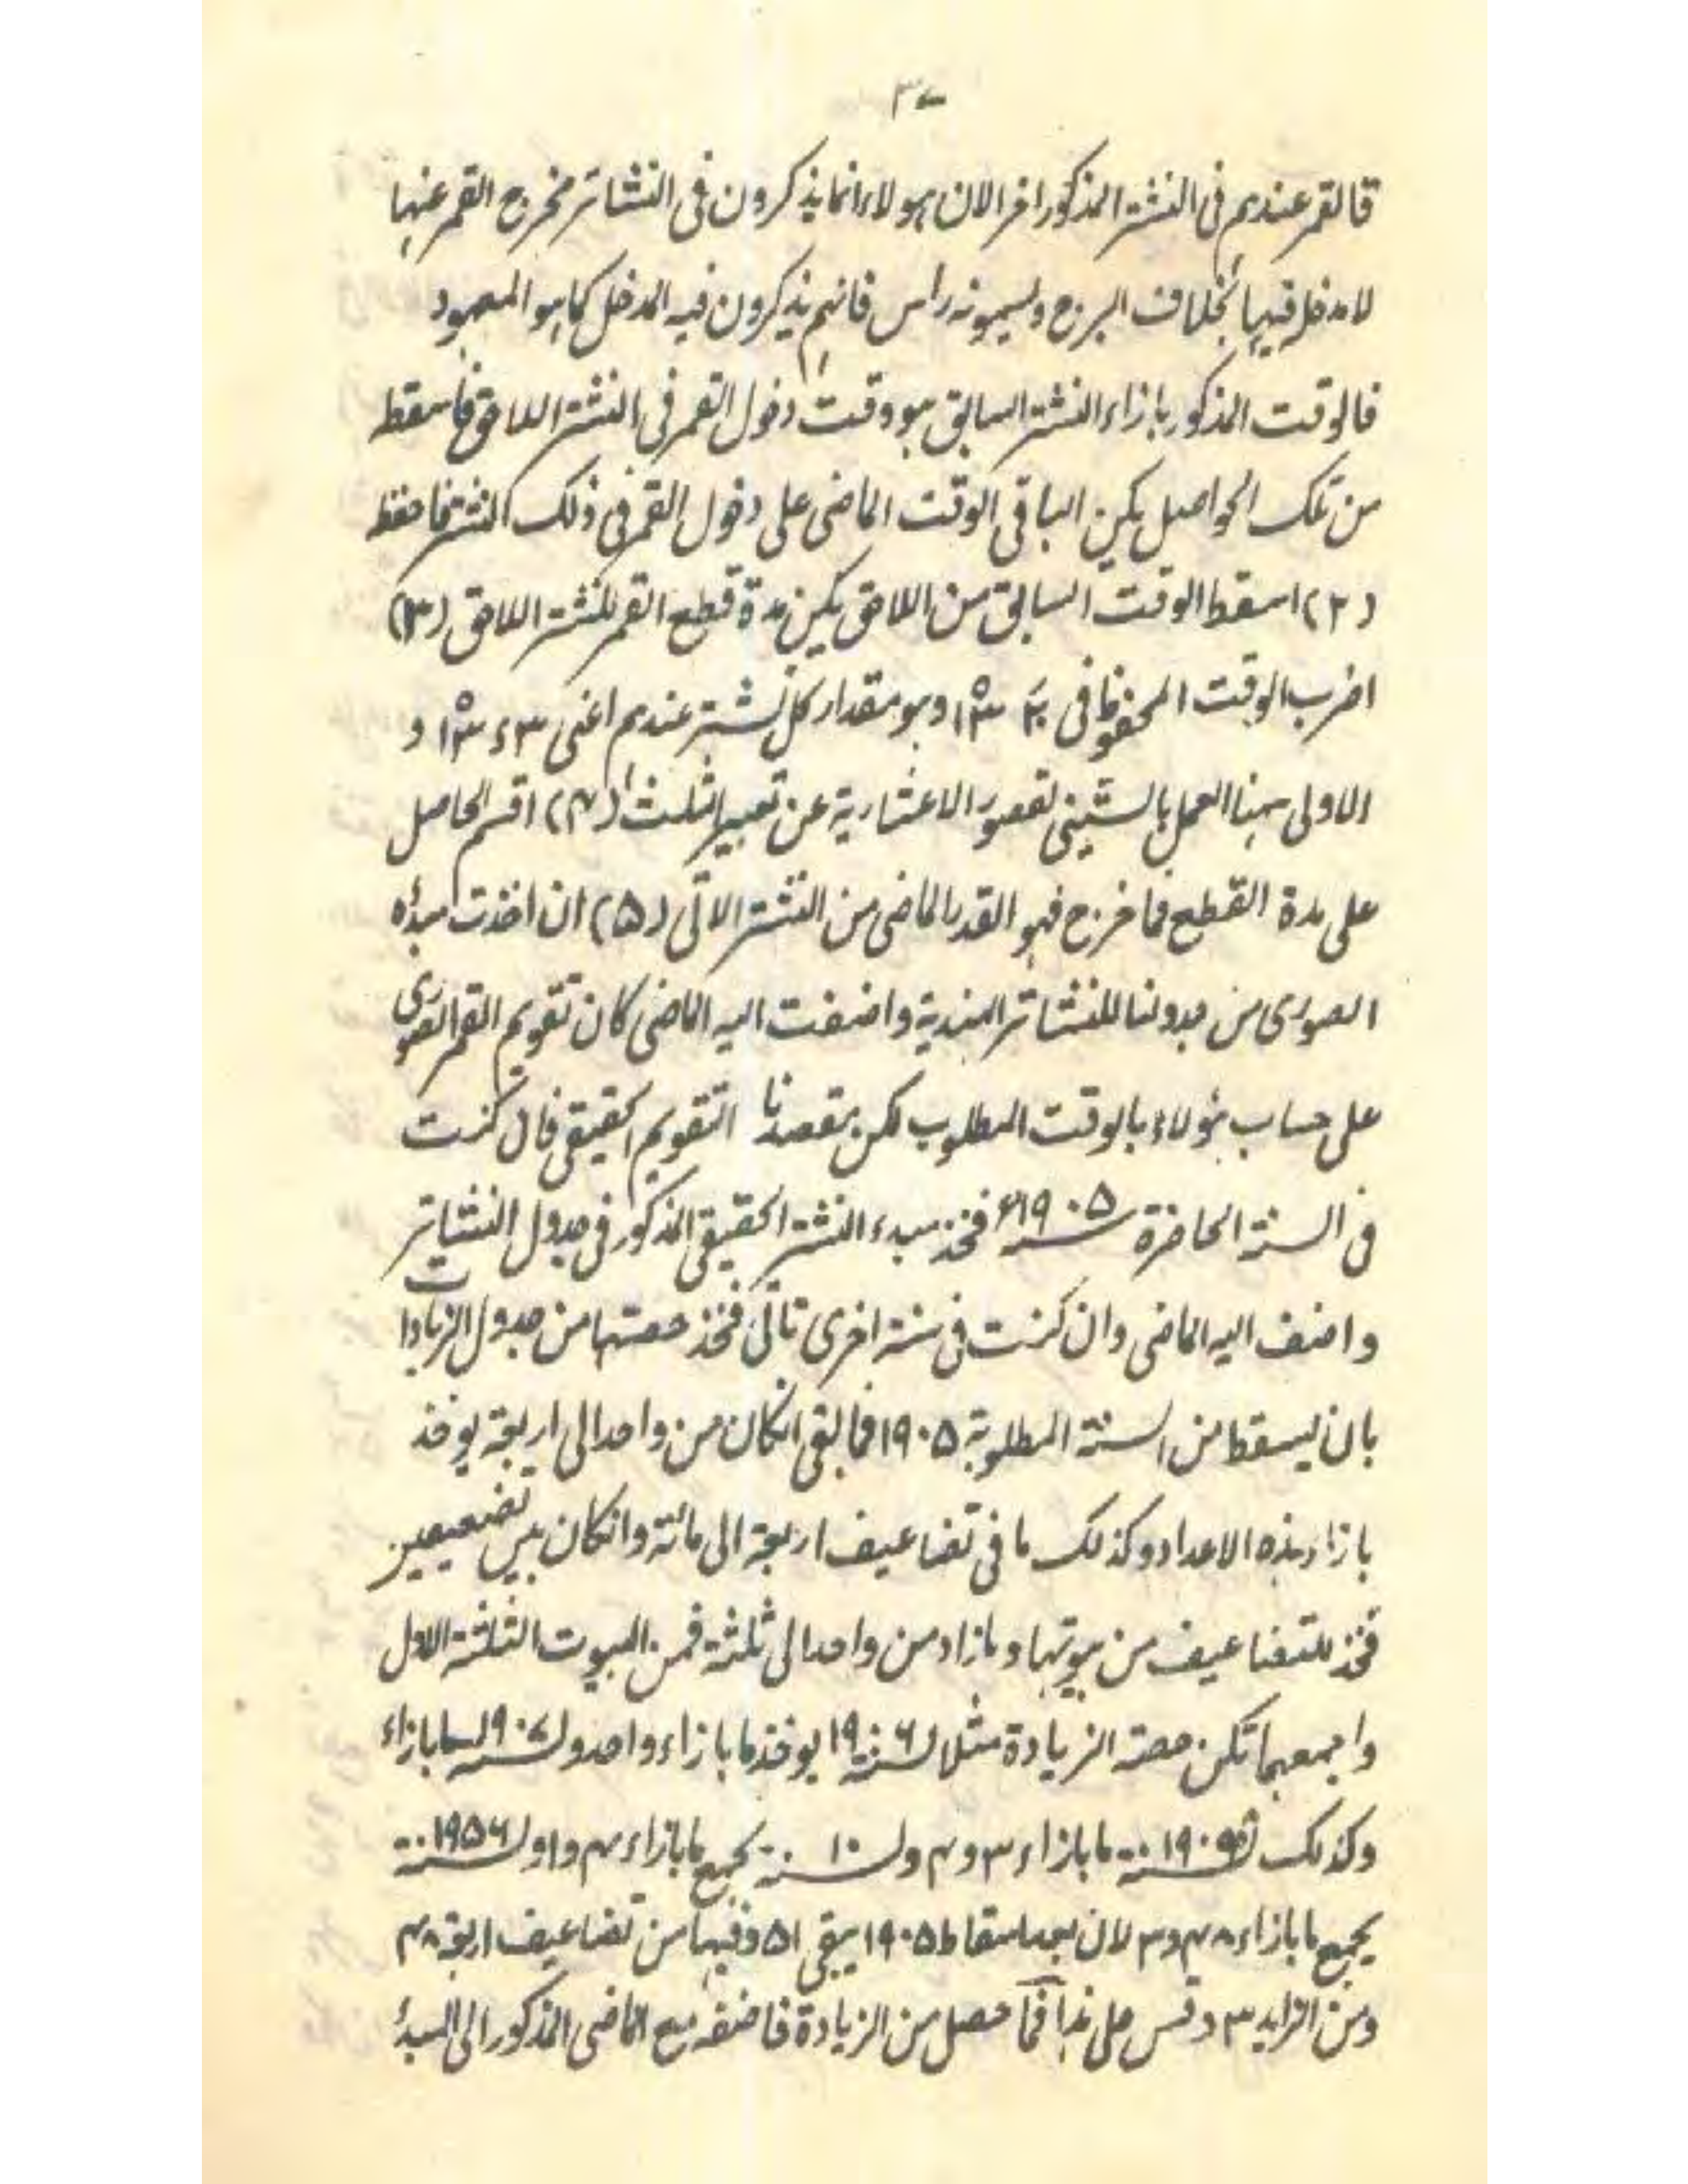 ٣٧
فالقمر عندهم فى النشتر المذكور اخر الان هولاء انما يذكرون فى النشاتر مخرج القمر عنها
لا مدخله فيها بخلاف البرج ويسمونه راس فانهم يذكرون فيه المدخل كما هو المعهود
فالوقت المذكور بازاء النشتر السابق هو وقت دخول القمر فى النشتر اللاحق فاسقطه
من تلك الحواصل يكن الباقى الوقت الماضى على دخول القمر فى ذلك النشتر فاحفظه
(٢) اسقط الوقت السابق من اللاحق يكن مدة قطع القمر للنشتر اللاحق (٣)
اضرب الوقت المحفوظ فى وهو مقدار كل نشتر عندهم اعنى و
الاولى ههنا العمل بالستينى لقصور الاعشارية عن تعبير الثلث (٤) اقسم الحاصل
على مدة القطع فما خرج فهو القدر الماضى من النشتر الاتى (۵) ان اخذت مبدأه
الصورى من جدولنا للنشاتر الهندية واضفت اليه الماضى كان تقويم القمر الصورى
على حساب هؤلاء بالوقت المطلوب لكن مقصدنا التقويم الحقيقى فان كنت
فى السنة الحاضرة سنه ١٩٠۵ء فخذ مبدء النشتر الحقيقى المذكور فى جدول النشاتر
واضف اليه الماضى وان كنت فى سنة اخرى تاتى فخذ حصتها من جدول الزيادات
بان يسقط من السنة المطلوبة ١٩٠۵ فما بقى انكان من واحد الى اربعة يوخذ
بازاء هذه الاعداد وكذلك ما فى تضاعيف اربعة الى مائة وانكان بين تضعيفين
فخذ للتضاعيف من بيوتها وبازاد من واحد الى ثلثة فمن البيوت الثلثة الاول
واجمعهما تكن حصة الزيادة مثلا لسنة ١٩٠٦ يوخذ ما بازاء واحد ولسنه ١٩٠٧ ما بازاء
وكذلك ما بازاء ٣ و٤ ولسنة ١٠ يجمع ما بازاء ٤ و١ ولسنة ١٩۵٦
يجمع ما بازاء ٤٨ و٣ لان بعد اسقاط ١٩٠۵ يبقى ۵١ وفيها من تضاعيف اربعة ٤٨
ومن الزايد ٣ وقس على هذا فما حصل من الزيادة فاضفه مع الماضى المذكور الى المبدأ